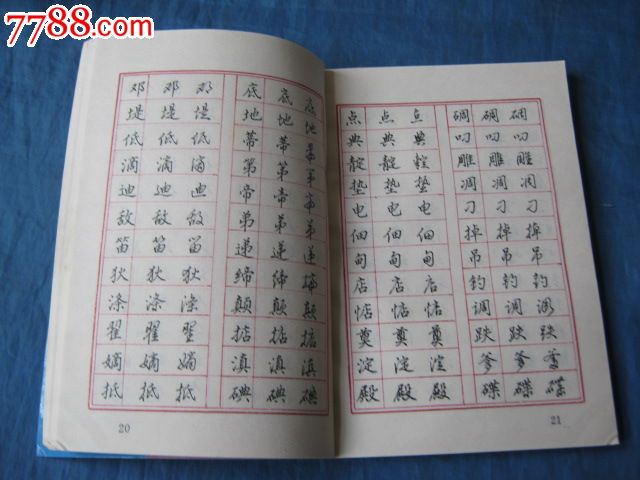 7788.com
邓 邓 邓 底 底 底
堤 堤 堤 地 地 地
低 低 低 蒂 蒂 蒂
滴 滴 滴 第 第 第
迪 迪 迪 帝 帝 帝
敌 敌 敌 弟 弟 弟
笛 笛 笛 递 递 递
狄 狄 狄 缔 缔 缔
涤 涤 涤 颠 颠 颠
翟 翟 翟 掂 掂 掂
嫡 嫡 嫡 滇 滇 滇
抵 抵 抵 碘 碘 碘
20
点 点 点 碉 碉 碉
典 典 典 叼 叼 叼
靛 靛 靛 雕 雕 雕
垫 垫 垫 凋 凋 凋
电 电 电 刁 刁 刁
佃 佃 佃 掉 掉 掉
甸 甸 甸 吊 吊 吊
店 店 店 钓 钓 钓
惦 惦 惦 调 调 调
奠 奠 奠 跌 跌 跌
淀 淀 淀 爹 爹 爹
殿 殿 殿 碟 碟 碟
21